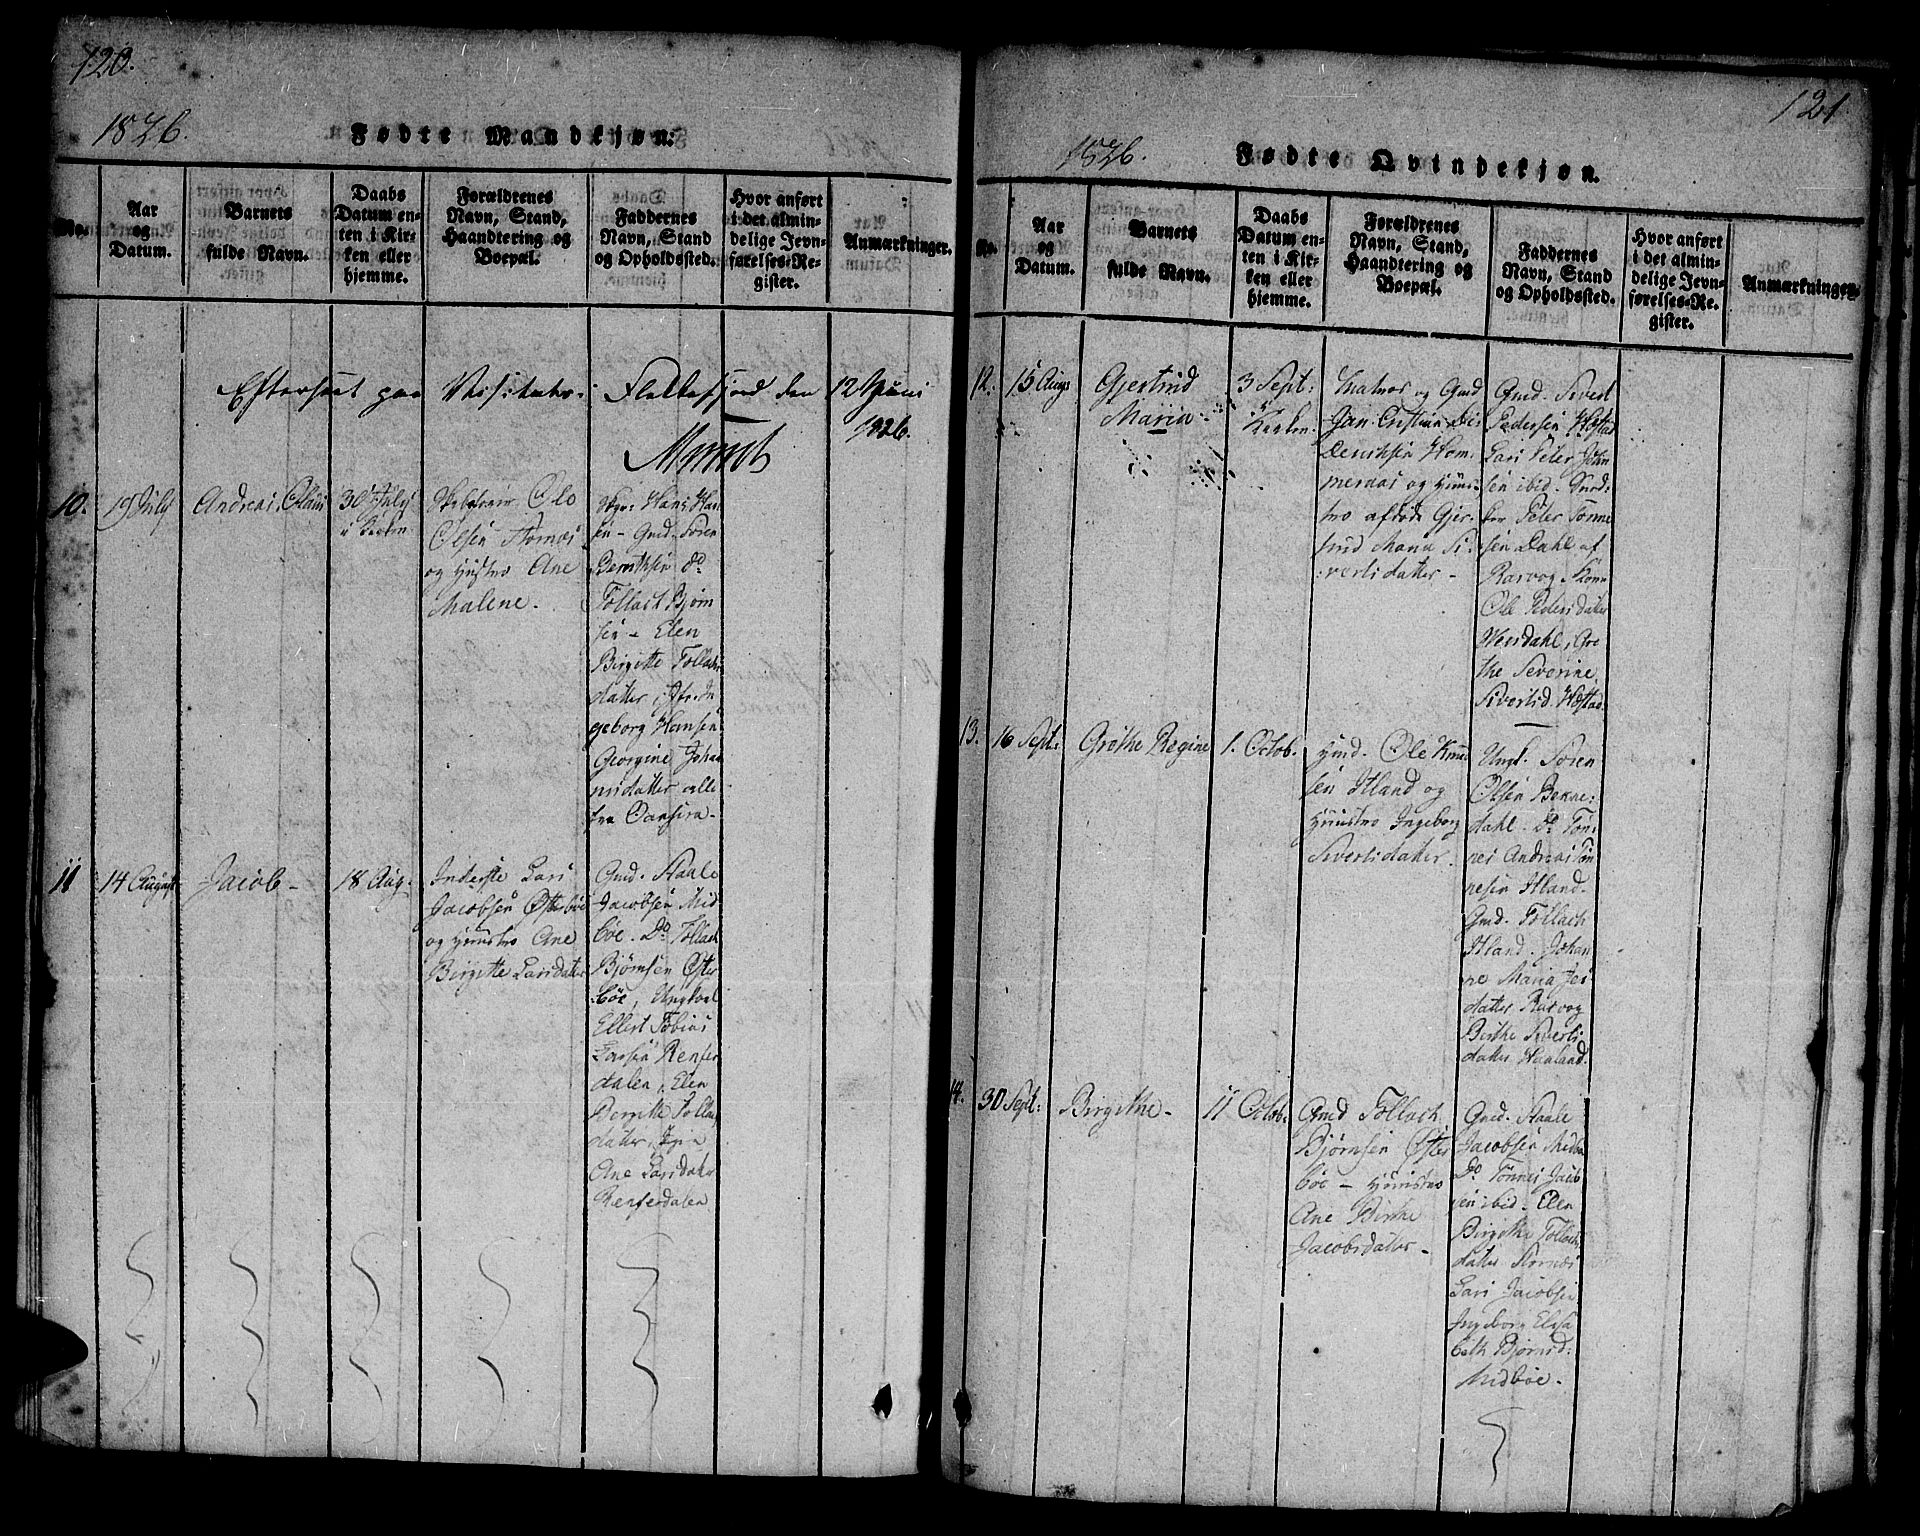 120.
1826.
Fødte Mandkjøn:
No.
Aar
og
Datum.
Barnets
fulde Navn.
Daabs
Datum en-
ten i Kir-
ken eller
hjemme.
Forældrenes
Navn, Stand,
Haandtering og
Boepæl.
Faddernes
Navn, Stand
og Opholdssted.
Hvor anført
i det almin-
delige Jevn-
førelses-Re-
gister.
Anmærkninger.
Efterseet paa Visitats. Flekkefjord den 12 Juni
1826.
10.
19 July
Andreas Olaus
30 July
i Kirken
Ole
Olsen
og Hustro Ane
Malene.
Hans Han
sen - Gmd. Søren
Do
Tollach Bjørn
sen - Elen
Birgitte Tollachs
datter, In
geborg Hansen
Georgine Johan
nisdatter alle
fra
11
14 August
Jacob -
18 Aug.
Inderste Lars
Jacobsen Østerbøe
og Huustro Ane
Birgitte Larsdatter
Gmd. Staale
Jacobsen Mid
bøe. Do Tollach
Bjørnsen Øster
bøe, Ungkarl
Ellert Tobias
Larsen Renser
dalen, Elen
Bergitte Tollachs
datter,
Ane Larsdatter
Renserdalen
121
1826.
Fødte Qvindekjøn.
No.
Aar
og
Datum.
Barnets
fulde Navn.
Daabs
Datum en-
ten i Kir-
ken eller
hjemme.
Forældrenes
Navn, Stand,
Haandtering og
Boepæl.
Faddernes
Navn, Stand
og Opholdssted.
Hvor anført
i det almin-
delige Jevn-
førelses-Re-
gister.
Anmærkninger.
12.
15 Augs
Gjertrud
Maria -
3 Sept:
Kirken.
Matros og Gmd
Jan Cristian
Henrichsen Hom
mernæs og Huus-
tro afdøde Gjer-
trud Maria Si-
vertsdatter -
Gmd. Sivert
Pedersen
Lars Peter Johan
sen ibid.
Peter Tønne
sen Dahl af
Rarvog
Ole Peders datter
Gre
the Severine
Sivertsd.
13.
16 Sept:
Grethe Regine
1. Octob.
Gmd. Ole Knud
sen Itland og
Huustro Ingeborg
Sivertsdatter.
Ungk. Søren
Olsen Benne-
dahl. Do Tøn-
nes Andreas Tøn
nesen Itland.
Gmd. Tollach
Itland. Johan
ne Maria Jes
datter Rarvog
Birthe Siverts
datter Haaland.
14.
30 Sept:
Birgithe -
11 Octob:
Gmd Tollach
Bjørnsen Øster
bøe - Huustro
Ane Birthe
Jacobsdatter -
Gmd. Staale
Jacobsen Midbøe
Do Tønnes Jacob
sen ibid. Elen
Birgithe Tollachs
datter Stornæs
Lars Jacobsen
Ingeborg Elisa
beth Bjørnsd:
Midbøe.